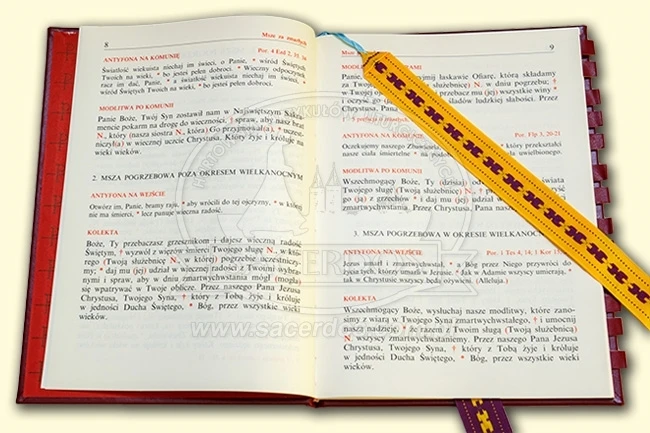 8
Msze za zmarłych
ANTYFONA NA KOMUNIĘ
Por. 4 Ezd 2, 35. 34
Światłość wiekuista niechaj im świeci, o Panie, * wśród Świętych
Twoich na wieki, * bo jesteś pełen dobroci. * Wieczny odpoczynek
racz im dać, Panie, * a światłość wiekuista niechaj im świeci, *
wśród Świętych Twoich na wieki, * bo jesteś pełen dobroci.
MODLITWA PO KOMUNII
Panie Boże, Twój Syn zostawił nam w Najświętszym Sakra-
mencie pokarm na drogę do wieczności, † spraw, aby nasz brat
N., który (nasza siostra N., która) Go przyjmował(a), * uczest-
niczył(a) w wiecznej uczcie Chrystusa. Który żyje i króluje na
wieki wieków.
2. MSZA POGRZEBOWA POZA OKRESEM WIELKANOCNYM
ANTYFONA NA WEJŚCIE
Otwórz im, Panie, bramy raju, * aby wrócili do tej ojczyzny, * w której
nie ma śmierci, * lecz panuje wieczna radość.
KOLEKTA
Boże, Ty przebaczasz grzesznikom i dajesz wieczną radość
Świętym, † wezwij z więzów śmierci Twojego sługę N., w któ-
rego (Twoją służebnicę N., w której) pogrzebie uczestniczy-
my; * daj mu (jej) udział w wiecznej radości z Twoimi wybra-
nymi i spraw, aby w dniu zmartwychwstania mógł (mogła)
się wpatrywać w Twoje oblicze. Przez naszego Pana Jezusa
Chrystusa, Twojego Syna, † który z Tobą żyje i króluje
w jedności Ducha Świętego, * Bóg, przez wszystkie wieki
wieków.
Msze
9
Panie, przyjmij łaskawie Ofiarę, którą składamy
za Twojego (Twoją służebnicę) N., w dniu pogrzebu;
w Twojej przebacz mu (jej) wszystkie winy *
i oczyść go (ją) śladów ludzkiej słabości. Przez
Chrystusa, Pana
ANTYFONA NA KOMUNIĘ
Por. Flp 3, 20-21
Oczekujemy naszego Zbawiciela * który przekształci
nasze ciała śmiertelne * na podobieństwo uwielbionego.
MODLITWA PO KOMUNII
Wszechmogący Boże, Ty
Twojego sługę (Twoją służebnicę) N., oczyść
go (ją) z grzechów * i daj mu (jej)
zmartwychwstania. Przez Chrystusa, Pana naszego.
3. MSZA POGRZEBOWA W OKRESIE WIELKANOCNYM
ANTYFONA NA WEJŚCIE
Por. 1 Tes 4, 14; 1 Kor 15
Jezus umarł i zmartwychwstał, * a Bóg przez Niego przywiedzie do
życia tych, którzy umarli w Jezusie. * Jak w Adamie wszyscy umierają, *
tak w Chrystusie wszyscy będą ożywieni. (Alleluja.)
KOLEKTA
Wszechmogący Boże, wysłuchaj nasze modlitwy, które zano-
simy z wiarą w Twojego Syna zmartwychwstałego, † i umocnij
naszą nadzieję, * że razem z Twoim sługą (Twoją służebnicą)
N. wszyscy zmartwychwstaniemy. Przez naszego Pana Jezusa
Chrystusa, Twojego Syna, † który z Tobą żyje i króluje
w jedności Ducha Świętego, * Bóg, przez wszystkie wieki
wieków.